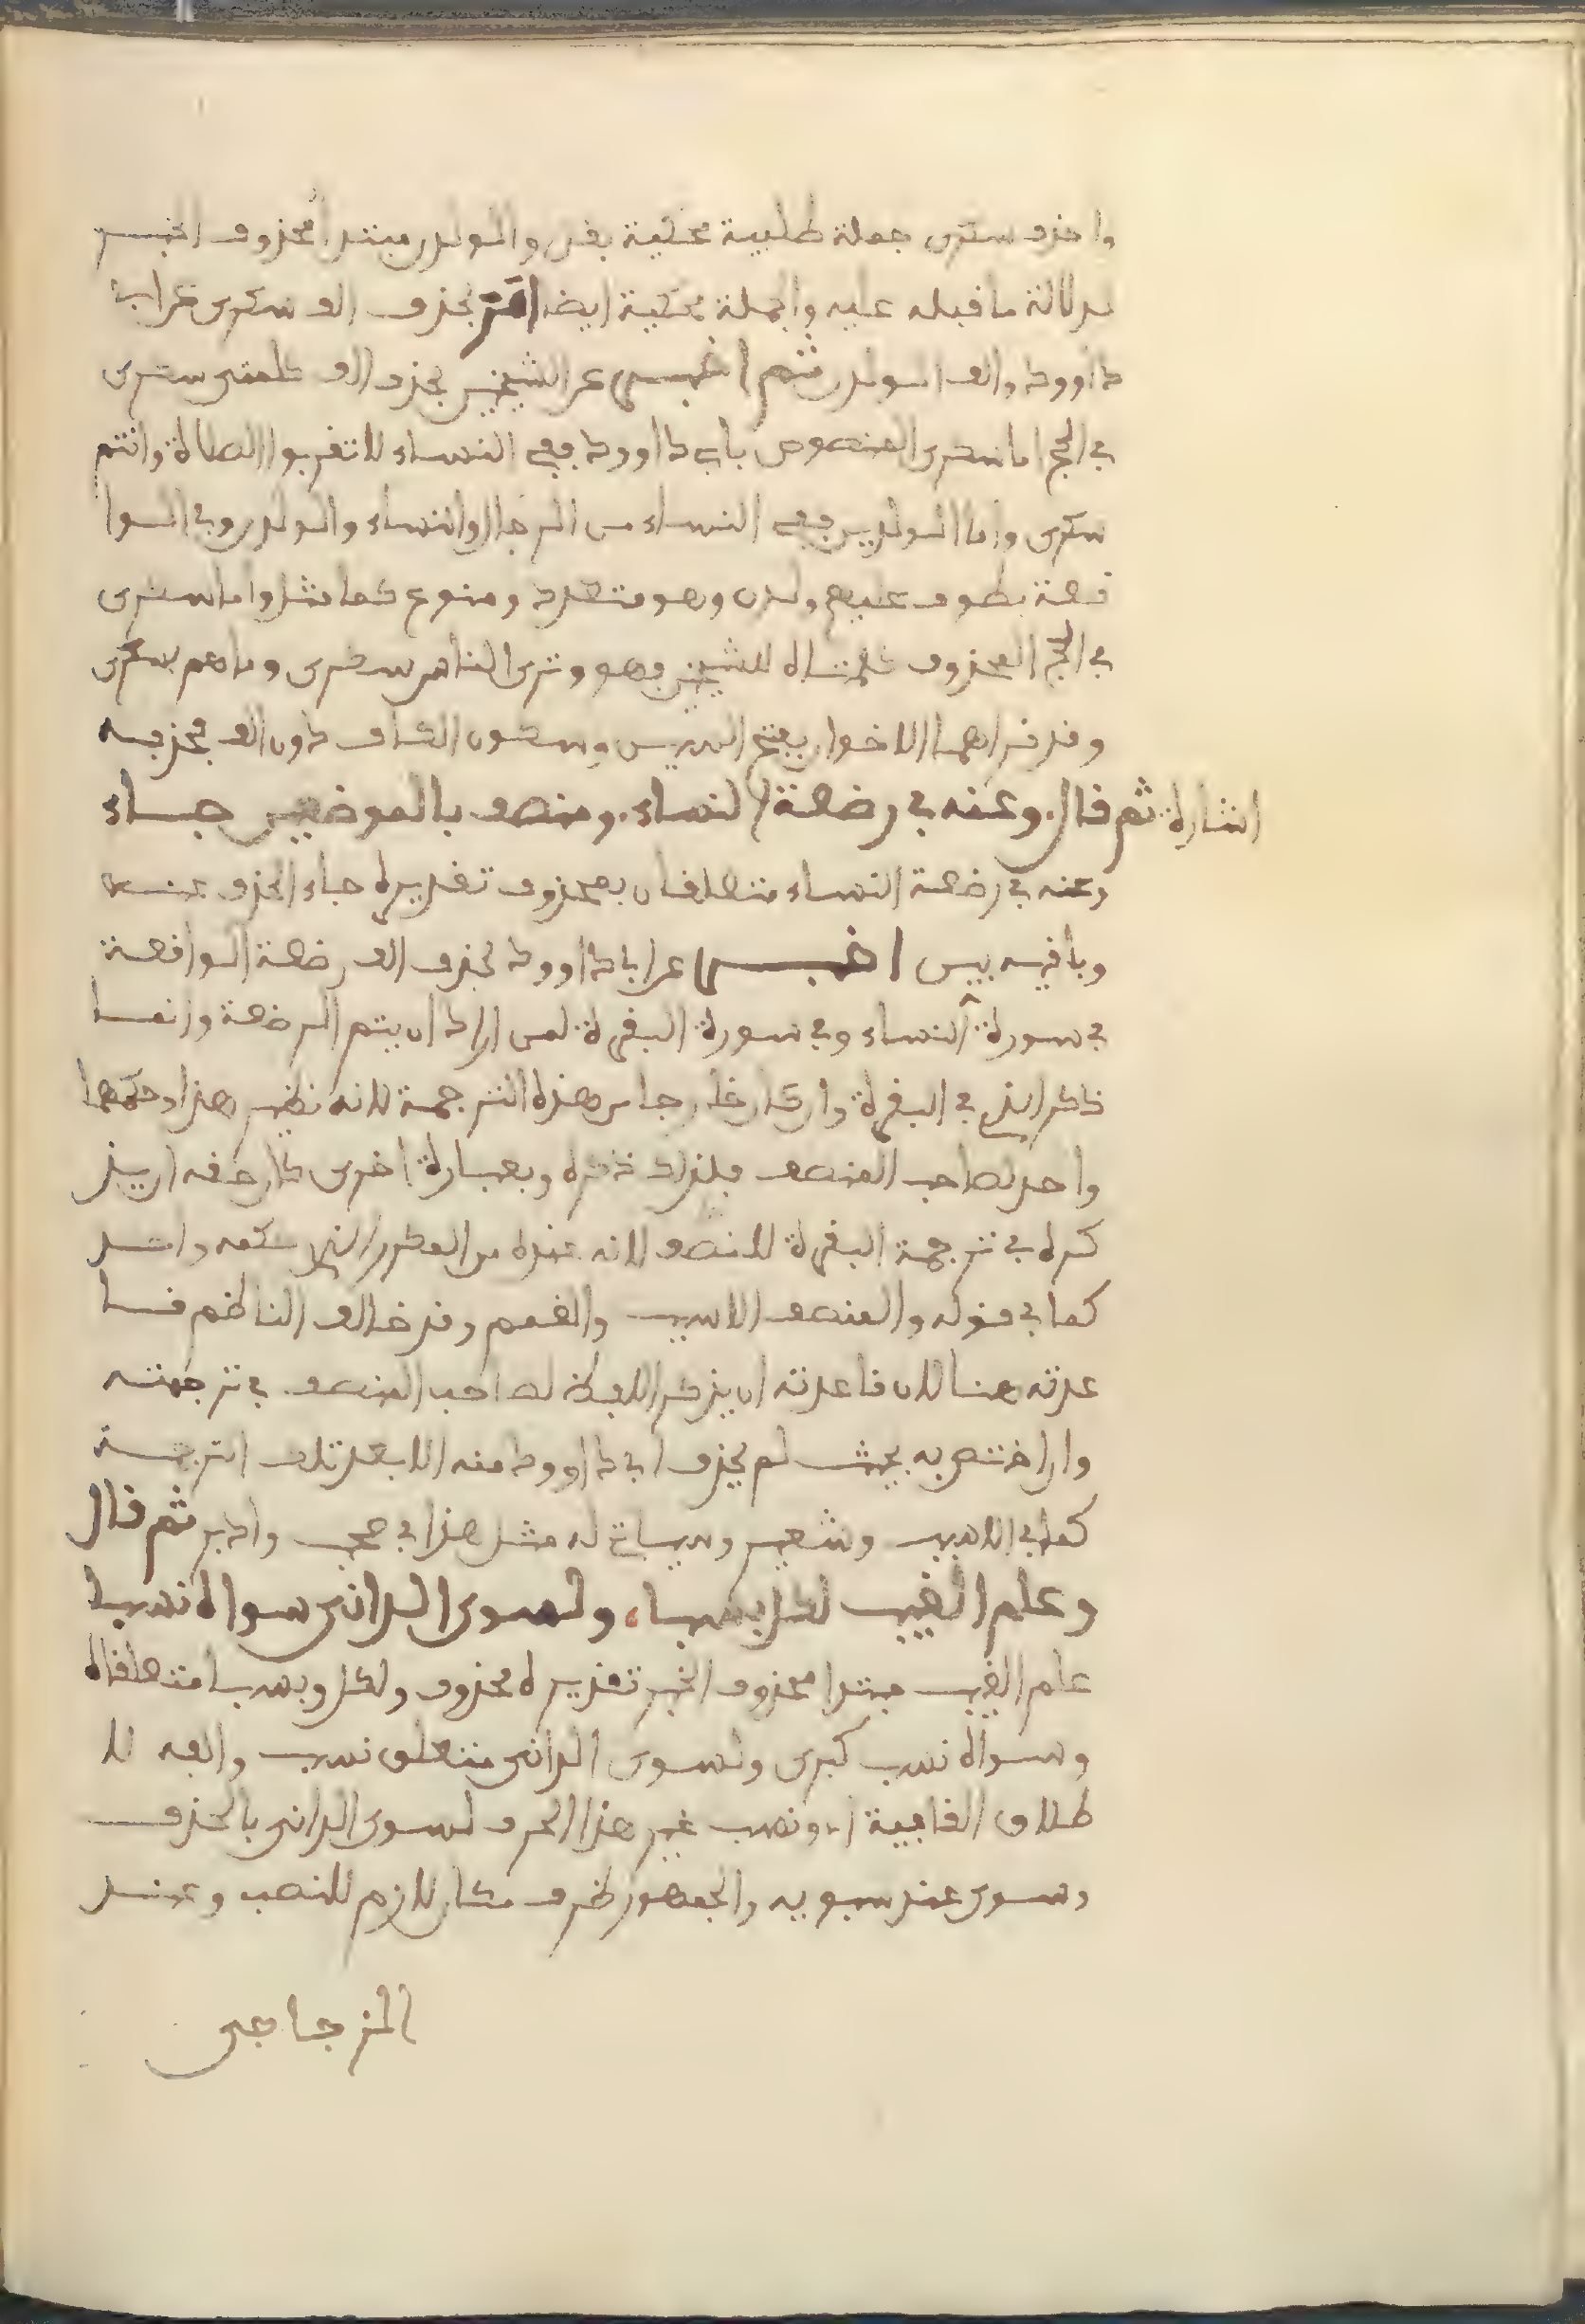 واحذف سكرى جملة طلبية محكية بقل والولدن مبتدأ محذوف الخبر
لدلالة ما قبله عليه والجملة محكية ايضا امر بحذف الف سكرى عن ابى
داوود والف الولدن ثم اخبر عن الشيخين بحذف الف كلمتى سكرى
في الحج اما سكرى المنصوص بابى داوود ففى النساء لا تقربوا الصلاة وانتم
سكرى واما الولدن ففى النساء من الرجال والنساء والولدن وفي الوا
قعة يطوف عليهم ولدن وهو متعدد ومنوع كما مثل واما سكرى
في الحج المحذوف كلمتاه للشيخين فهو وترى الناس سكرى وما هم بسكرى
وقد قراهما الاخوان بفتح السين وسكون الكاف دون الف فحذفه
اشارة ثم قال وعنه في رضعة النساء ومنصف بالموضعين جاء
وعنه في رضعة النساء متعلقان بمحذوف تقديره جاء الحذف عنه
وباقيه بين اخبر عن ابا داوود بحذف الف رضعة الواقعة
في سورة النساء وفي سورة البقرة لمن اراد ان يتم الرضعة وانما
ذكر الذي في البقرة وان كان خارجا من هذه الترجمة لانه نظير هذا وحكمهما
واحد لصاحب المنصف فلذلك ذكره وبعبارة اخرى كان حقه ان يذ
كره في ترجمة البقرة للمنصف لانه عنده من المكرر الذي حكمه واحد
كما في قوله والمنصف الاسبب والغمم وقد خالف الناظم قا
عدته هنا لان قاعدته ان يذكر اللفظ لصاحب المنصف في ترجمته
وان اختص به بحيث لم يحذف ابى داوود منه الا بعد تلك الترجمة
كما في الاسبب وشعير وسياتى له مثل هذا في صحب وادبر ثم قال
وعلم الغيب لكل بسبا، ولسوى الدانى سواه نسبا
علم الغيب مبتدا محذوف الخبر تقديره محذوف ولكل وبسبا متعلقاه
وسواه نسب كبرى ولسوى الدانى متعلق نسب والفه لا
طلاق القافية اى ونسب غير هذا الحرف لسوى الدانى بالحذف
وسوى عند سبويه والجمهور ظرف مكان لازم للنصب وعند
الزجاجى